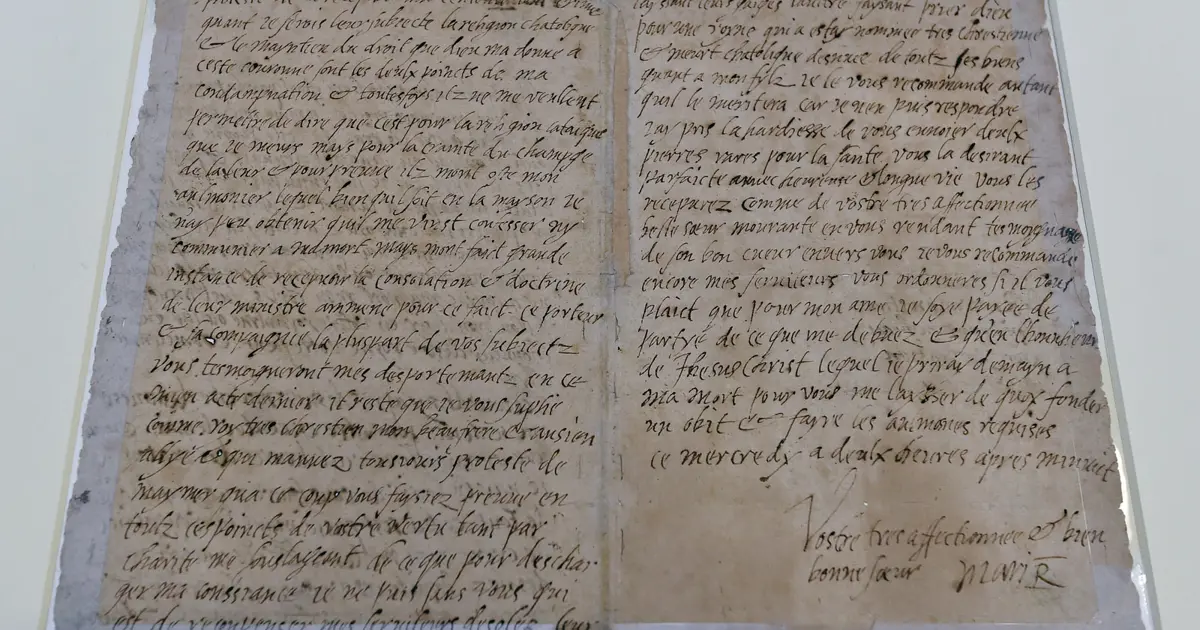 quant je serois leur subjecte la religion chatolique
& le mayntien du droit que dieu ma donne a
ceste couronne sont les deulx poincts de ma
condampnation & toutesfoys ilz ne me veullent
permettre de dire que cest pour la religion catolique
que je meurs mays pour la crainte du champge
de la leur & pour preuve ilz mont oste mon
aulmonier lequel bien quil soit en la mayson je
nay peu obtenir quil me vinst confesser ny
communier a ma mort mays mont fait grande
instance de recepvoir la consolation & doctrine
de leur ministre ammene pour ce faict ce porteur
& sa compaignie la pluspart de vos subjectz
vous tesmoigneront mes desportemantz en ce
mien acte dernier il reste que je vous suplie
comme roy tres chrestien mon beau frere & ansien
allye & qui mavvez tousjours proteste de
maymer qua ce coup vous faysiez preuve en
toutz ces poincts de vostre vertu tant par
charite me soulageant de ce que pour deschar
ger ma conssiance je ne puis sans vous qui
est de reconpenser mes serviteurs desolez leur
laissant leurs gaiges laultre faysant prier dieu
pour une royne qui a estay nommee tres chrestienne
& meurt chatolique desnuee de toutz ses biens
quant a mon fylz je le vous recommande autant
quil le meritera car je nen puis respondre
jay pris la hardiesse de vous envoier deulx
pierres rares pour la sante vous la desirant
parfaicte avvec heureuse & longue vie vous les
recepvrez comme de vostre tres affectionnee
belle sœur mourante en vous rendant tesmoygnasge
de son bon cueur envers vous je vous recommande
encore mes serviteurs vous ordonneres si il vous
plaict que pour mon ame je soye payee de
partye de ce que me debvez & quen lhonneur
de Jhesus Christ lequel je priray demayn a
ma mort pour vous me laisser de quoy fonder
un obit & fayre les aulmones requises
ce mercredy a deulx heures apres minuict
Vostre tres affectionnee & bien
bonne sœur Mari R